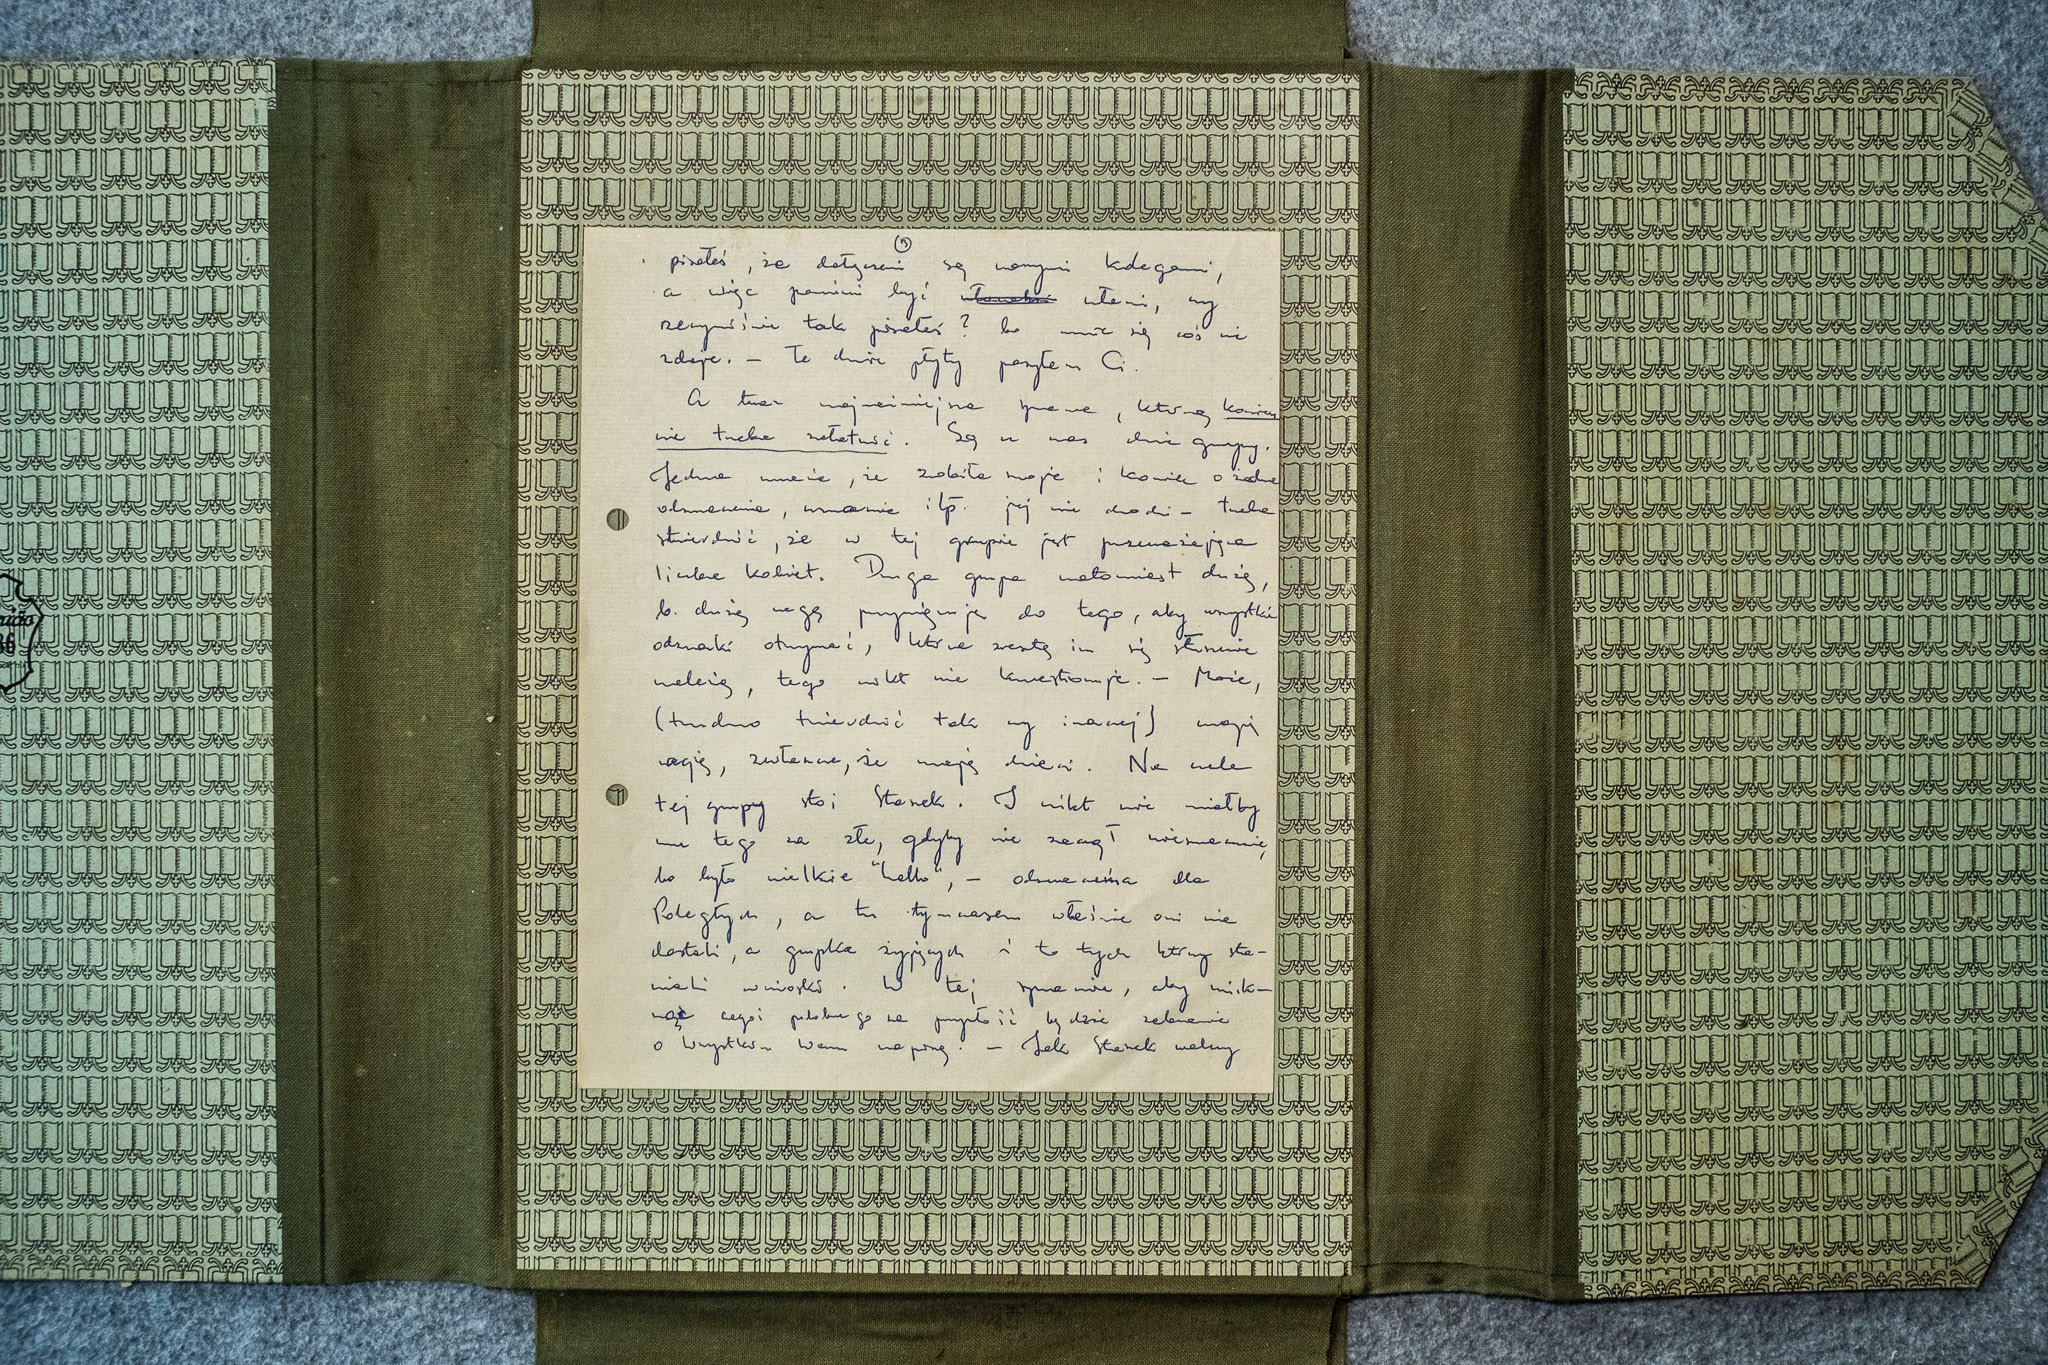 pisałeś, że dołączeni są kolegami,
a więc powinni być , czy
rzeczywiście tak pisałeś? bo mnie się coś nie
zdaje. – Te dwie płyty posyłam Ci.
A teraz najważniejsza sprawa, którą koniecz
nie trzeba załatwić. Są u nas dwie grupy.
Jedna uważa, że zrobiła swoje i koniec o żadne
odznaczenia, uznanie itp. jej nie chodzi – trzeba
stwierdzić, że w tej grupie jest przeważająca
liczba kobiet. Druga grupa natomiast dużą,
b. dużą wagę przywiązuje do tego, aby wszystkie
odznaki otrzymać, które zresztą im się słusznie
należą, tego nikt nie kwestionuje. – Może,
(trudno twierdzić tak czy inaczej) mają
rację, zwłaszcza, że mają dzieci. Na czele
tej grupy stoi Staszek. I nikt nie miałby
mu tego za złe, gdyby nie zaczął
bo było wielkie "hallo", – odznaczenia dla
Poległych, a tu tymczasem właśnie oni nie
dostali, a grupka żyjących i to tych którzy sta-
wiali wnioski. W tej sprawie, aby unik-
nąć czegoś podobnego na przyszłość będzie zebranie
o wszystkim Wam napiszę. – Jak Staszek